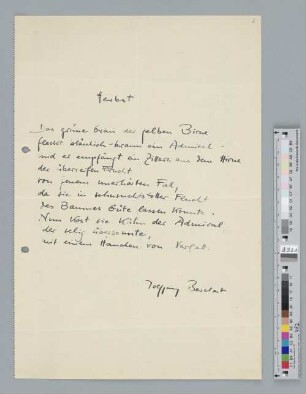 Herbst
Das grüne Grau der gelben Birne
fleckt bläulich-braun ein Admiral -
und er empfängt ein Zittern aus dem Hirne
der überreifen Frucht
von jenem unerhörten Fall,
da sie in sehnsuchtsvoller Flucht
des Baumes Güte lassen konnte.
Nun küsst sie kühn der Admiral
der selig übersonnte,
mit einem Hauch von
Wolfgang Borchert